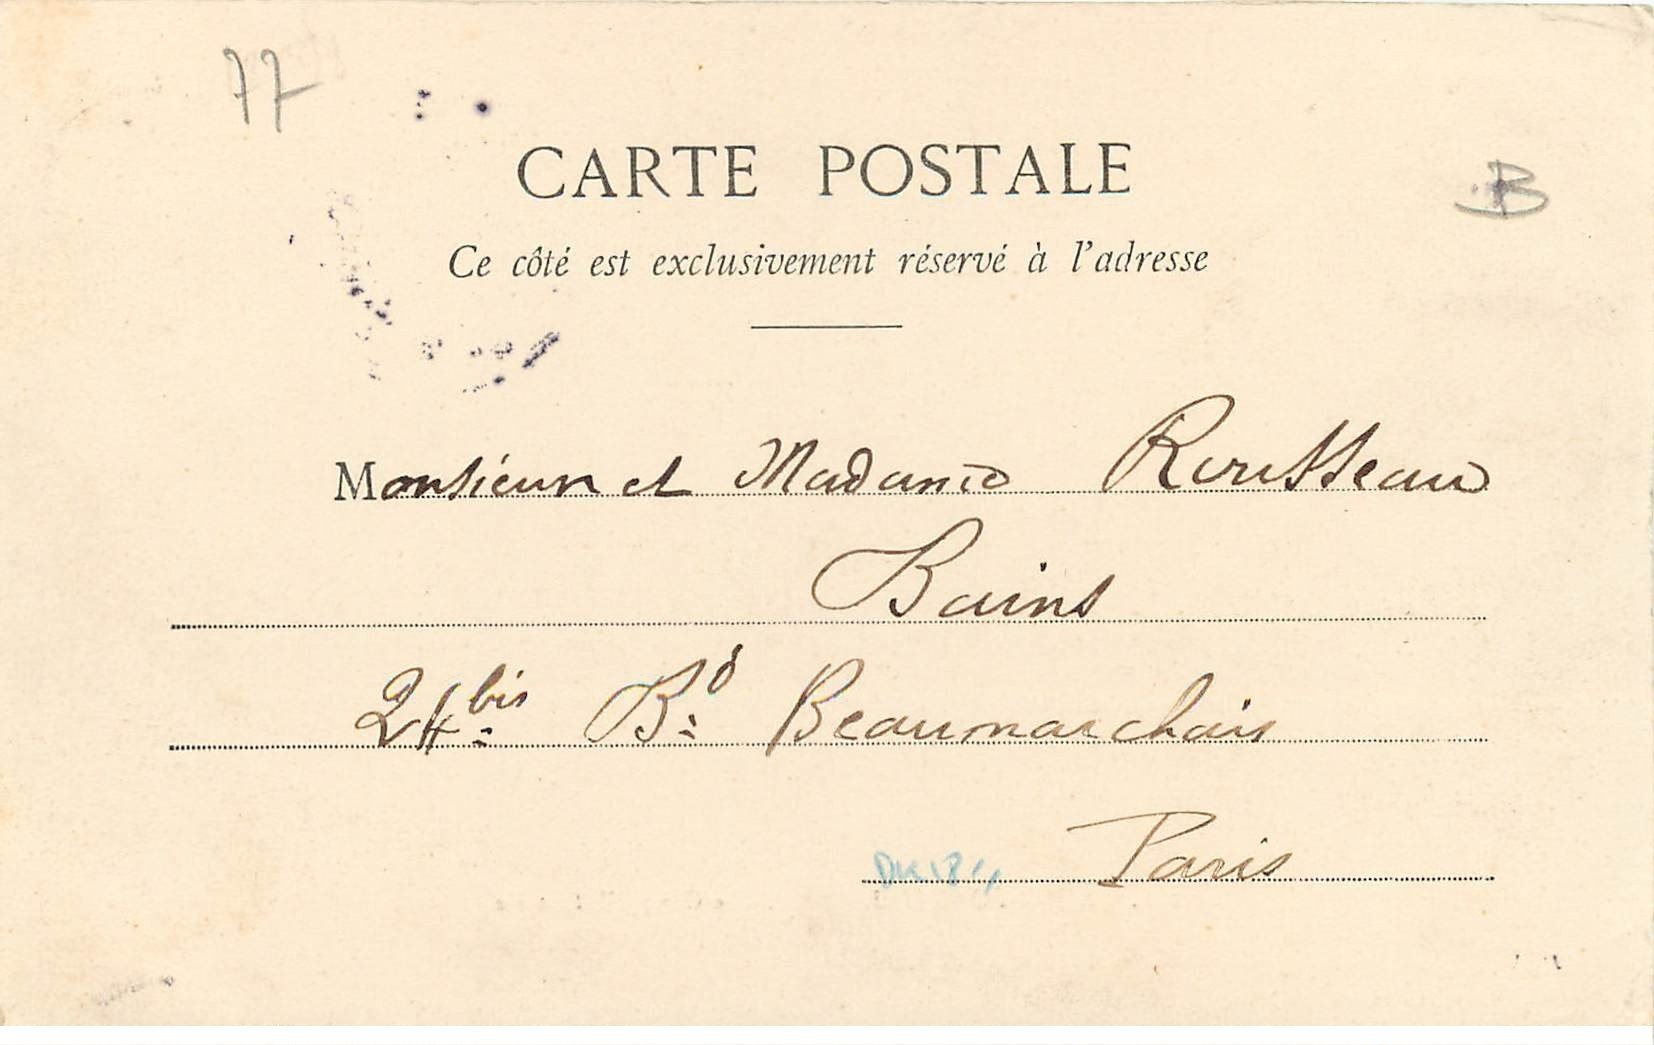 77
CARTE POSTALE
B
Ce côté est exclusivement réservé à l'adresse
Monsieur et Madame Rousseau
Bains
24 bis Bd Beaumarchais
Paris